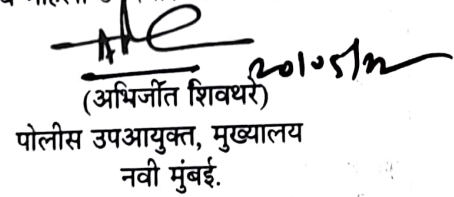 20/05/22
(अभिर्जीत शिवथरे)
पोलीस उपआयुक्त, मुख्यालय
नवी मुंबई.